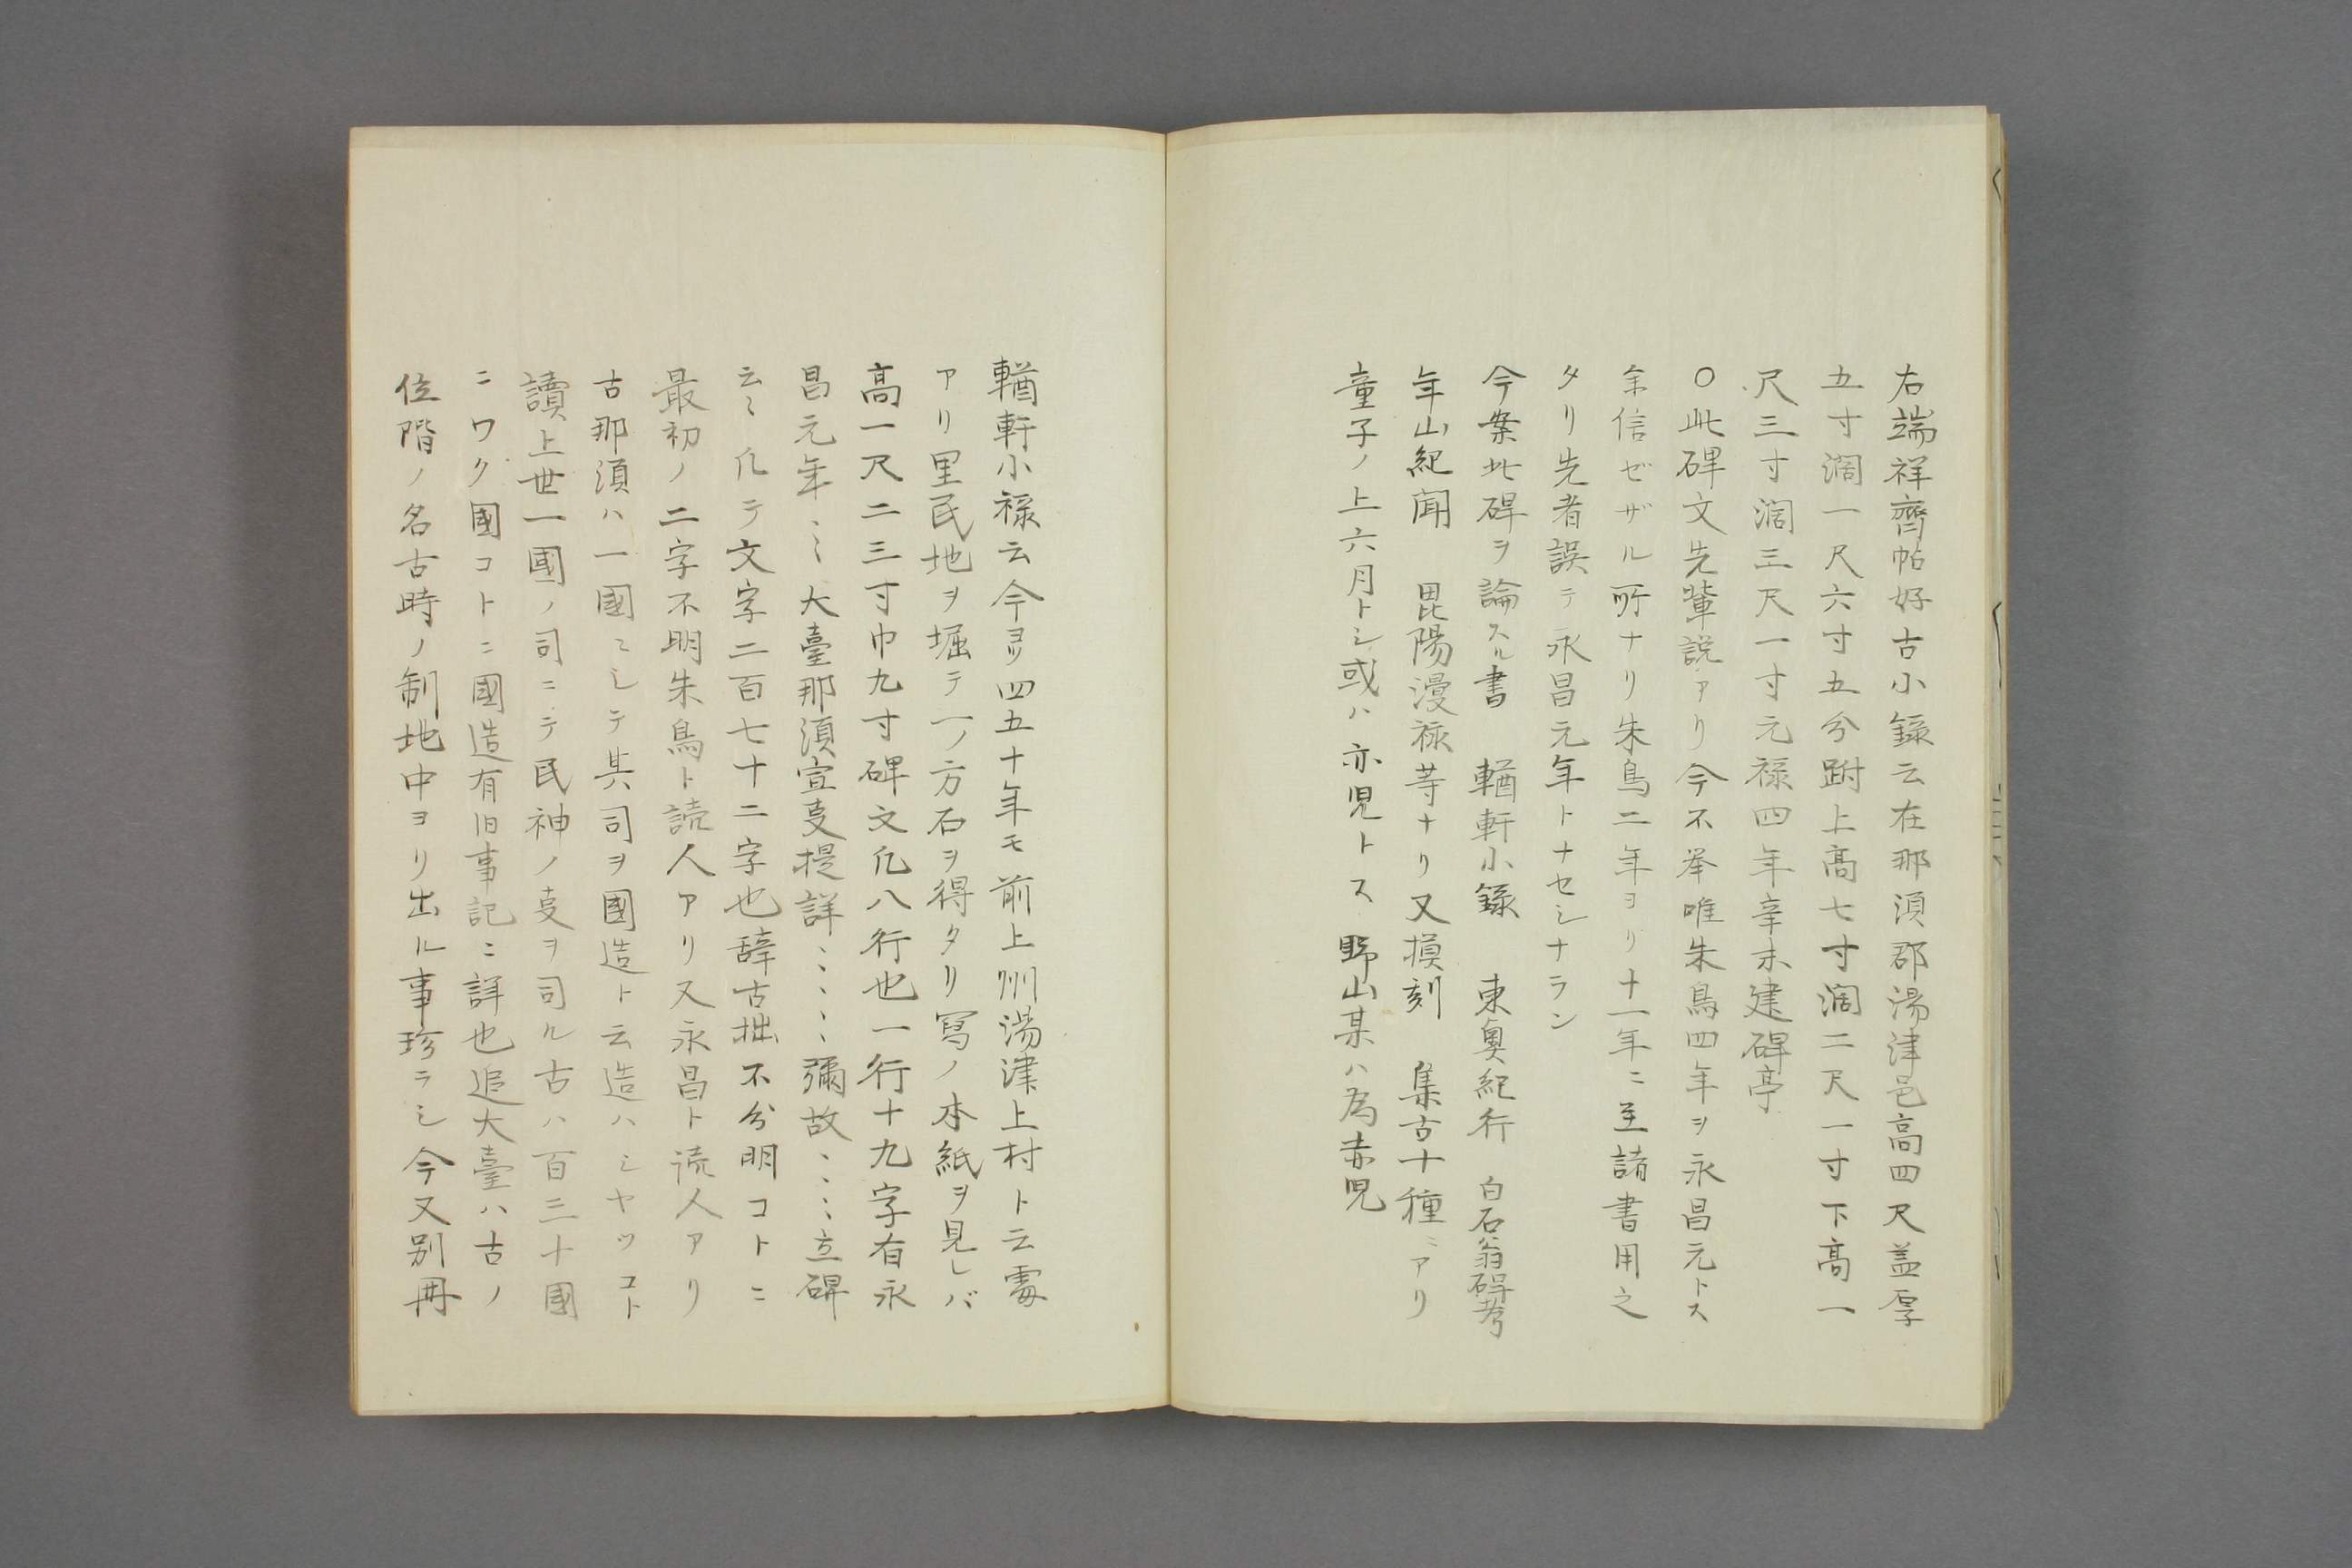 右端祥齊帖好古小録云在那須郡湯津邑高四尺盖厚
五寸濶一尺六寸五分跗上高七寸濶二尺一寸下高一
尺三寸濶三尺一寸元禄四年辛未建碑亭
〇此碑文先輩説アリ今不挙唯朱鳥四年ヲ永昌元トス
余信ゼザル所ナリ朱鳥二年ヨリ十一年ニ至諸書用之
タリ先者誤テ永昌元年トナセシナラン
今案此碑ヲ論スル書 輶軒小録 東奥紀行 白石翁碑考
年山紀聞 昆陽漫禄等ナリ又摸刻 集古十種ニアリ
童子ノ上六月トシ或ハ亦児トス 野山某ハ為赤児
輶軒小禄云今ヨリ四五十年モ前上州湯津上村ト云處
アリ里民地ヲ堀テ一ノ方石ヲ得タリ写ノ本紙ヲ見レバ
高一尺二三寸巾九寸碑文凢八行也一行十九字有永
昌元年〻〻大臺那須宣叓提詳〻〻〻〻彌故〻〻〻立碑
云〻凢テ文字二百七十二字也辞古拙不分明コトニ
最初ノ二字不明朱鳥ト読人アリ又永昌ト読人アリ
古那須ハ一國ニシテ其司ヲ國造ト云造ハシヤツコト
讀上世一國ノ司ニテ民神ノ叓ヲ司ル古ハ百三十國
ニワク國コトニ國造有旧事記ニ詳也追大臺ハ古ノ
位階ノ名古時ノ制地中ヨリ出ル事珍ラシ今又別冊